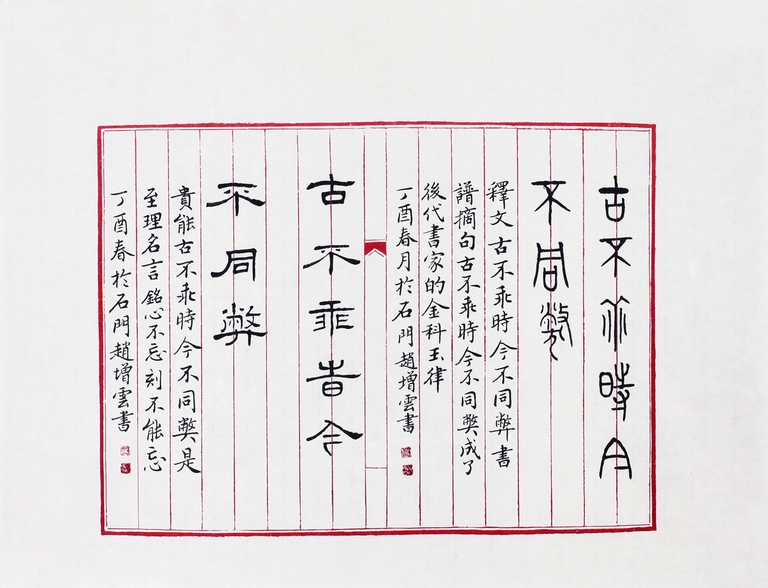 古不乖時今
不同弊
釋文古不乖時今不同弊書
譜摘句古不乖時今不同弊成了
後代書家的金科玉律
丁酉春月於石門趙增雲書
古不乖旹今
不同弊
貴能古不乖時今不同弊是
至理名言銘心不忘刻不能忘
丁酉春於石門趙增雲書